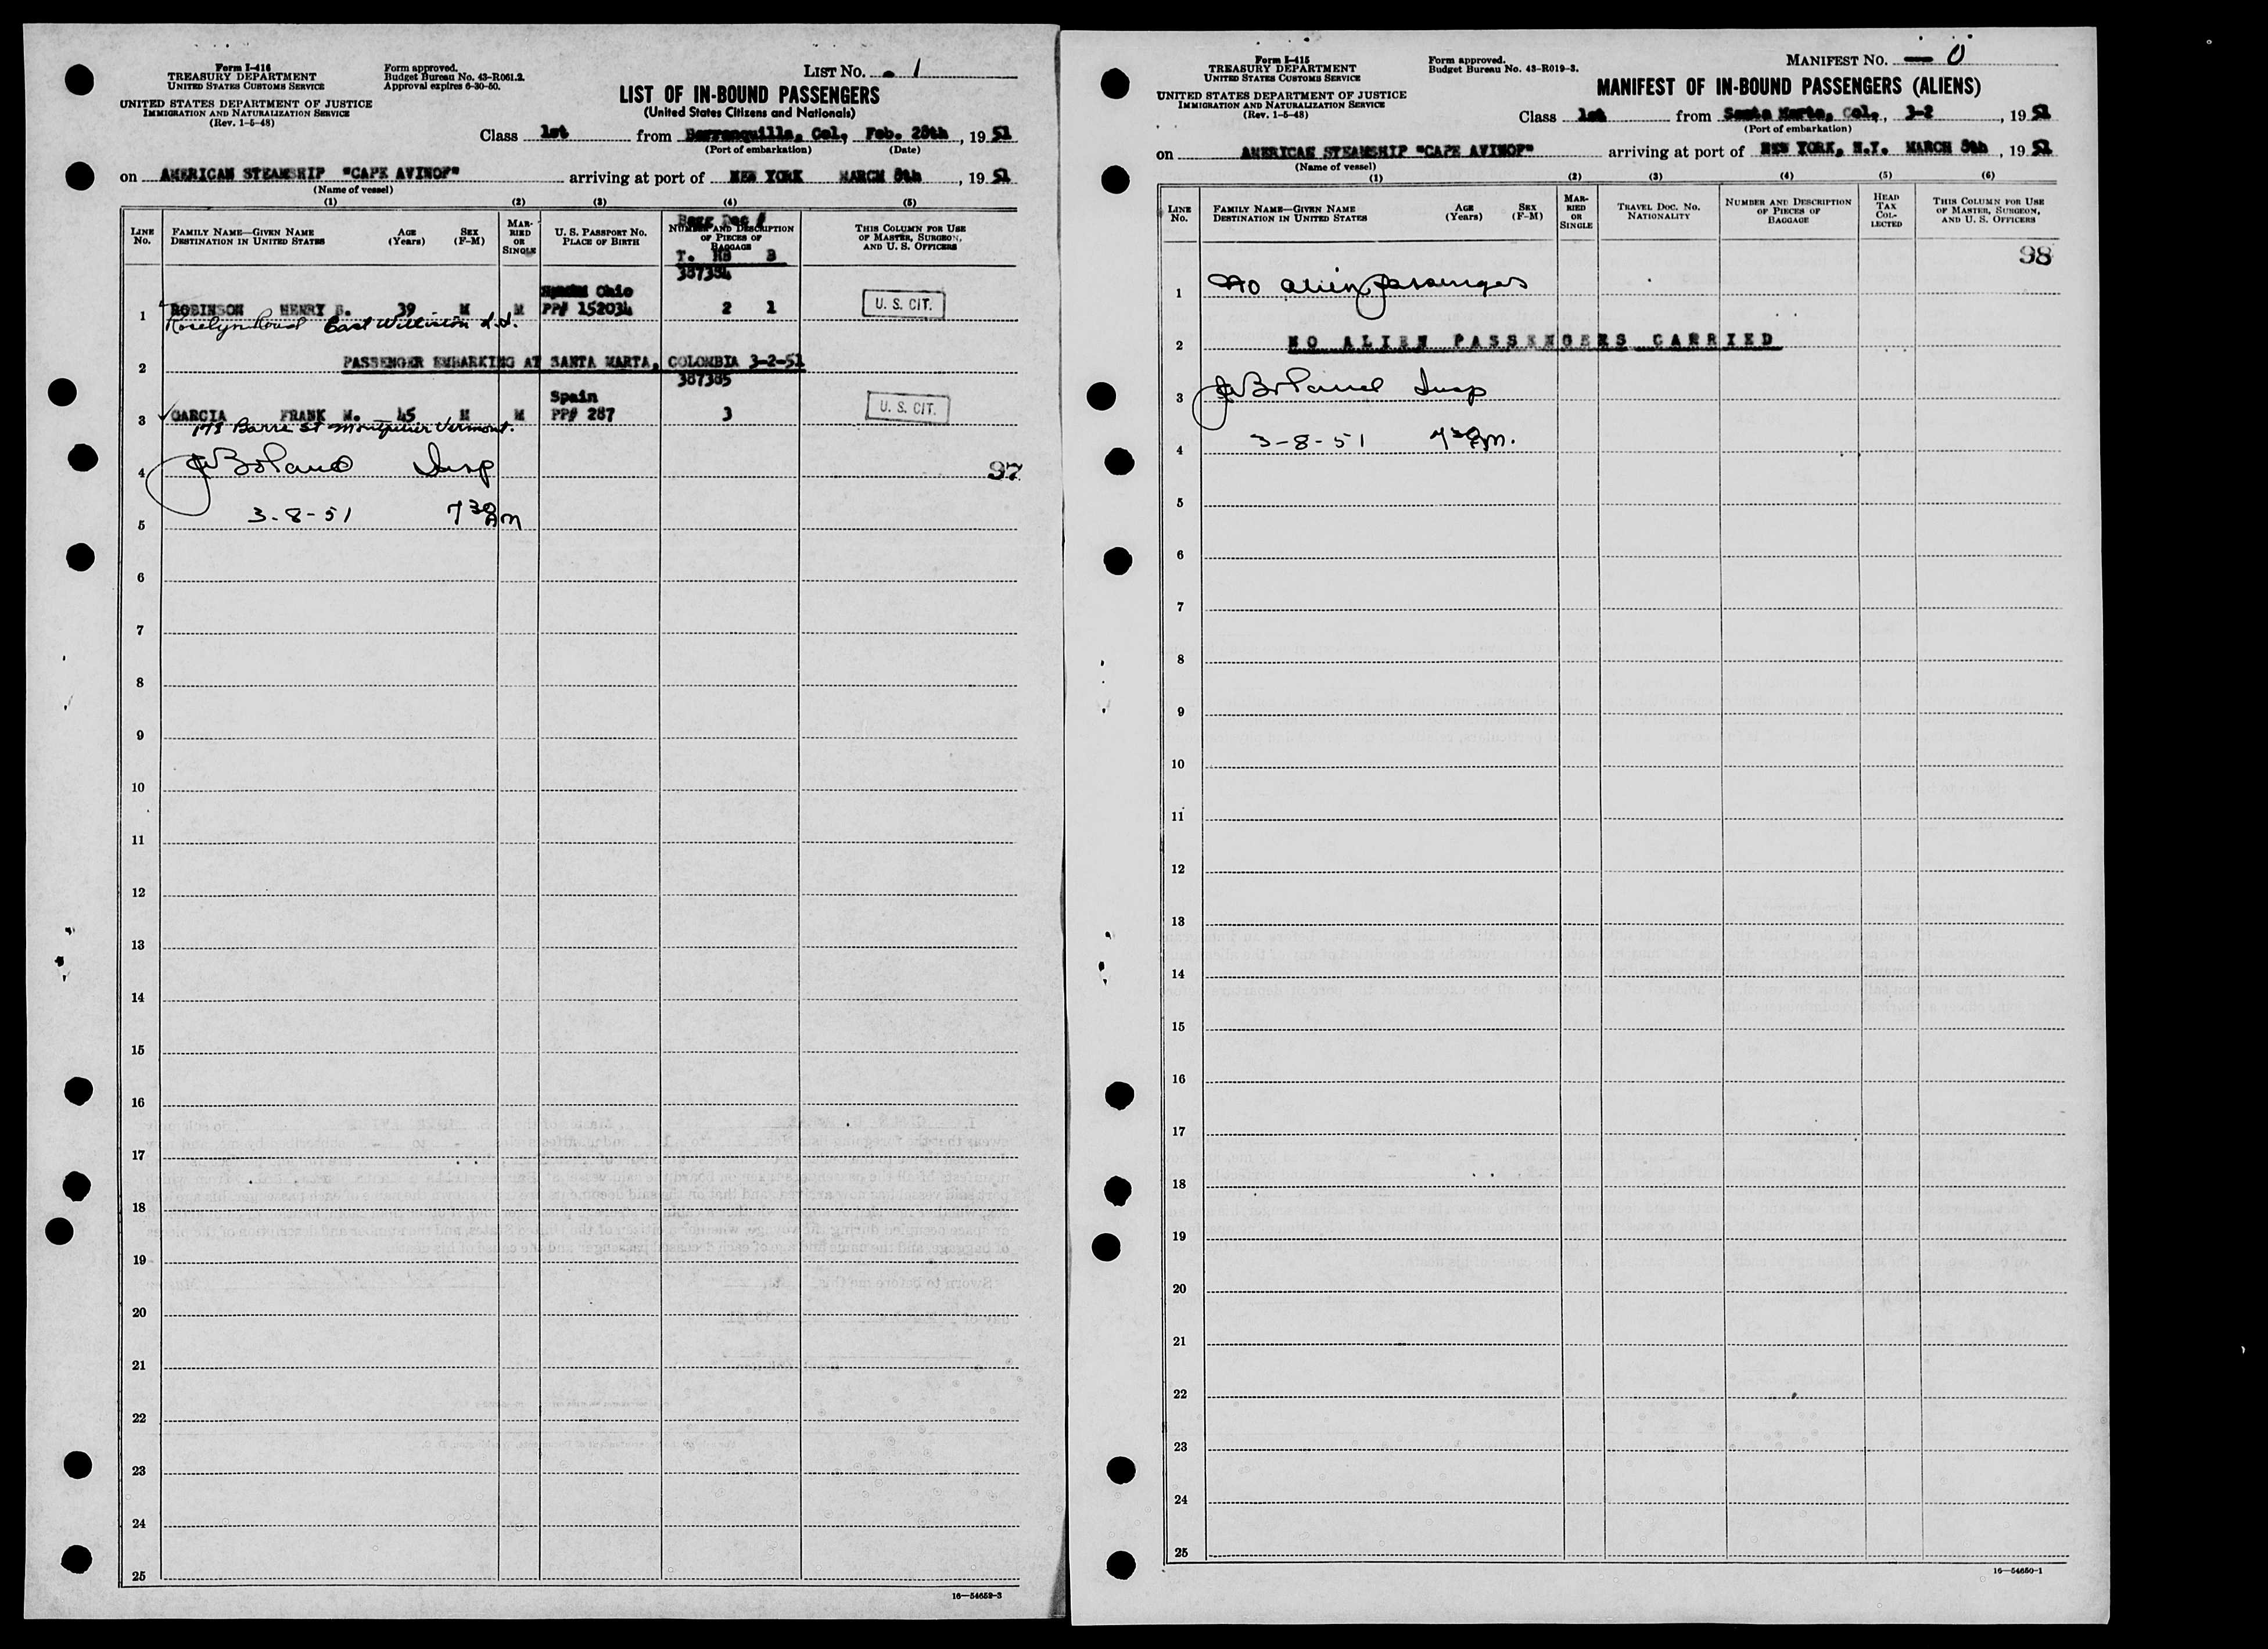 Form I-416
TREASURY DEPARTMENT
UNITED STATES CUSTOMS SERVICE
UNITED STATES DEPARTMENT OF JUSTICE
IMMIGRATION AND NATURALIZATION SERVICE
(Rev. 1-5-48)
Form approved.
Budget Bureau No. 43-R061.2.
Approval expires 6-30-50.
LIST NO. 1
LIST OF IN-BOUND PASSENGERS
(United States Citizens and Nationals)
Class 1st from Barranquilla, Col, Feb. 28th, 1951
(Port of embarkation) (Date)
on AMERICAN STEAMSHIP "CAPE AVINOF" arriving at port of NEW YORK MARCH 8th, 1951
(Name of vessel)
(1) (2) (3) (4) (5)
LINE NO.
FAMILY NAME—GIVEN NAME
DESTINATION IN UNITED STATES
AGE (Years)
SEX (F-M)
MARRIED OR SINGLE
U. S. PASSPORT NO.
PLACE OF BIRTH
Bagg Dec #
NUMBER AND DESCRIPTION OF PIECES OF BAGGAGE
T. HB B
THIS COLUMN FOR USE OF MASTER, SURGEON, AND U. S. OFFICERS
387384
Ohio
1 ROBINSON HENRY 39 M M PP# 152034 2 1 U. S. CIT.
East Williston L.I.
2 PASSENGER EMBARKING AT SANTA MARTA, COLOMBIA 3-2-51
387385
Spain
3 GARCIA FRANK M. 45 M M PP# 287 3 U. S. CIT.
178 Barre St Montpelier Vermont.
4 J Boland Insp 97
5 3-8-51 7 30 Am
6
7
8
9
10
11
12
13
14
15
16
17
18
19
20
21
22
23
24
25
16—54659-3
Form I-415
TREASURY DEPARTMENT
UNITED STATES CUSTOMS SERVICE
UNITED STATES DEPARTMENT OF JUSTICE
IMMIGRATION AND NATURALIZATION SERVICE
(Rev. 1-5-48)
Form approved.
Budget Bureau No. 43-R019-3.
MANIFEST NO. — 0
MANIFEST OF IN-BOUND PASSENGERS (ALIENS)
Class 1st from Santa Marta, Col., 3-2, 1951
(Port of embarkation)
on AMERICAN STEAMSHIP "CAPE AVINOF" arriving at port of NEW YORK, N.Y. MARCH 8th, 1951
(Name of vessel)
(1) (2) (3) (4) (5) (6)
LINE NO.
FAMILY NAME—GIVEN NAME
DESTINATION IN UNITED STATES
AGE (Years)
SEX (F-M)
MARRIED OR SINGLE
TRAVEL DOC. NO.
NATIONALITY
NUMBER AND DESCRIPTION OF PIECES OF BAGGAGE
HEAD TAX COLLECTED
THIS COLUMN FOR USE OF MASTER, SURGEON, AND U. S. OFFICERS
98
1 No alien passengers
2 NO ALIEN PASSENGERS CARRIED
3 J Boland Insp
4 3-8-51 7 30 Am.
5
6
7
8
9
10
11
12
13
14
15
16
17
18
19
20
21
22
23
24
25
16—54650-1